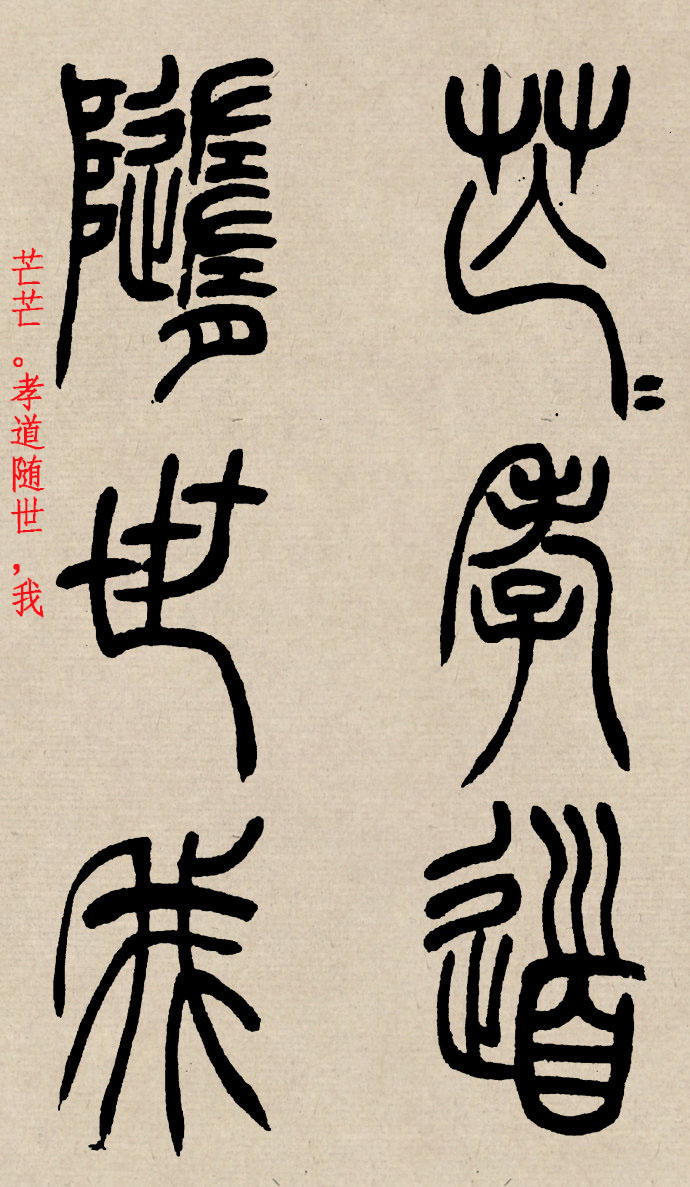 芒〻孝道
隨世我
芒芒。孝道随世,我